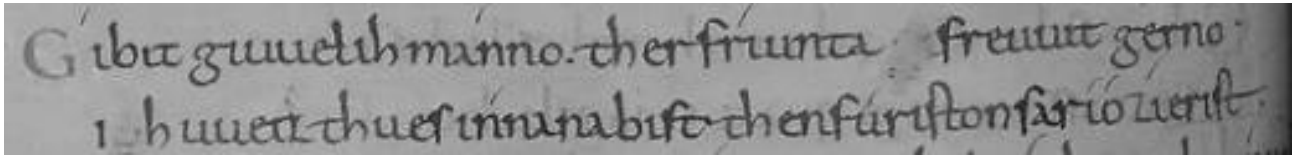 Gíbit giuuelih mánno. ther fríunta freuuit gerno·
Ih uueiz thu es ínnana bist then fúriston sar ió zi erist·